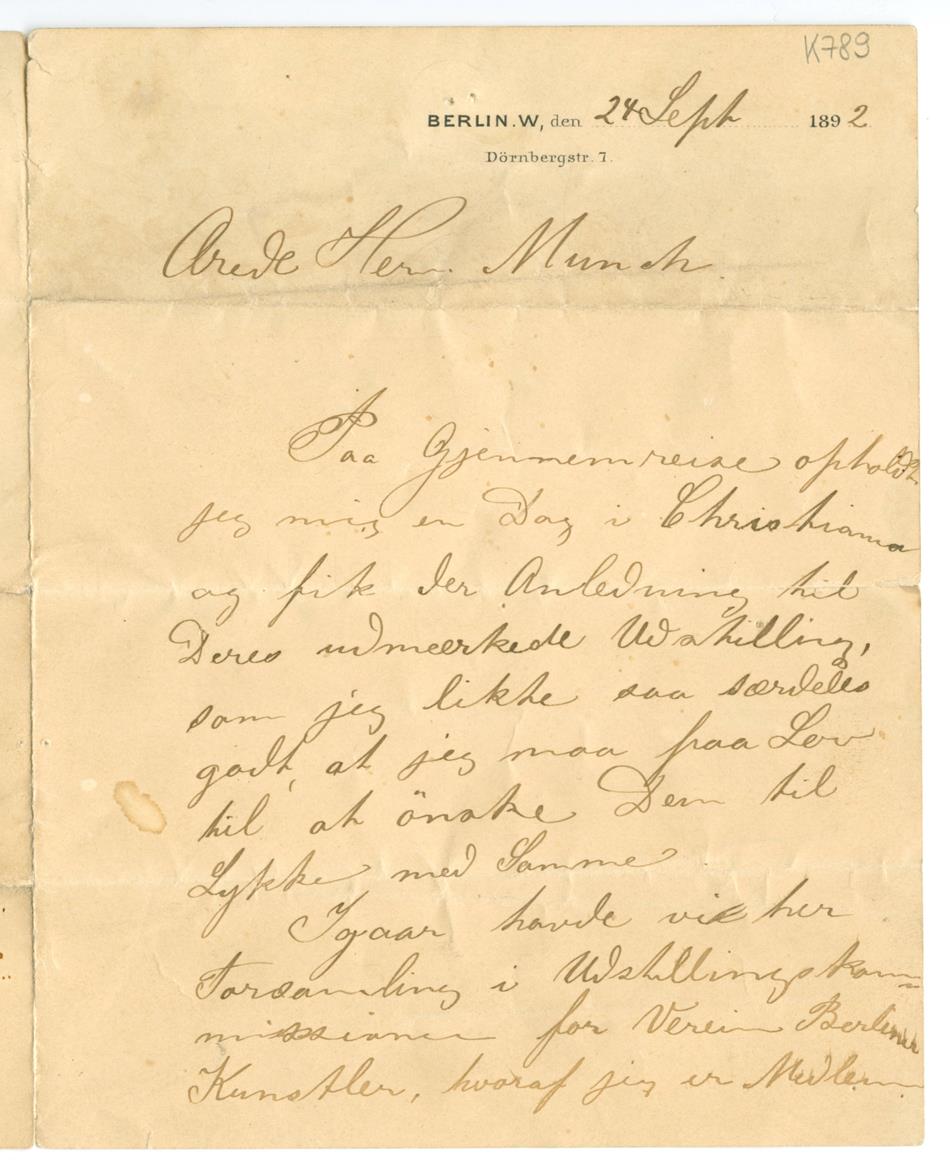 K789
BERLIN.W, den 24 Sept 1892
Dörnbergstr. 7.
Ærede Herr. Munch.
Paa Gjennemreise opholdt
jeg mig en Dag i Christiania
og fik der Anledning til
Deres udmærkede Udstilling,
som jeg likte saa særdeles
godt, at jeg maa faa Lov
til at önske Dem til
Lykke med Samme.
Igaar havde vi her
Forsamling i Udstillingskom-
missionen for Verein Berliner
Kunstler, hvoraf jeg er Medlem